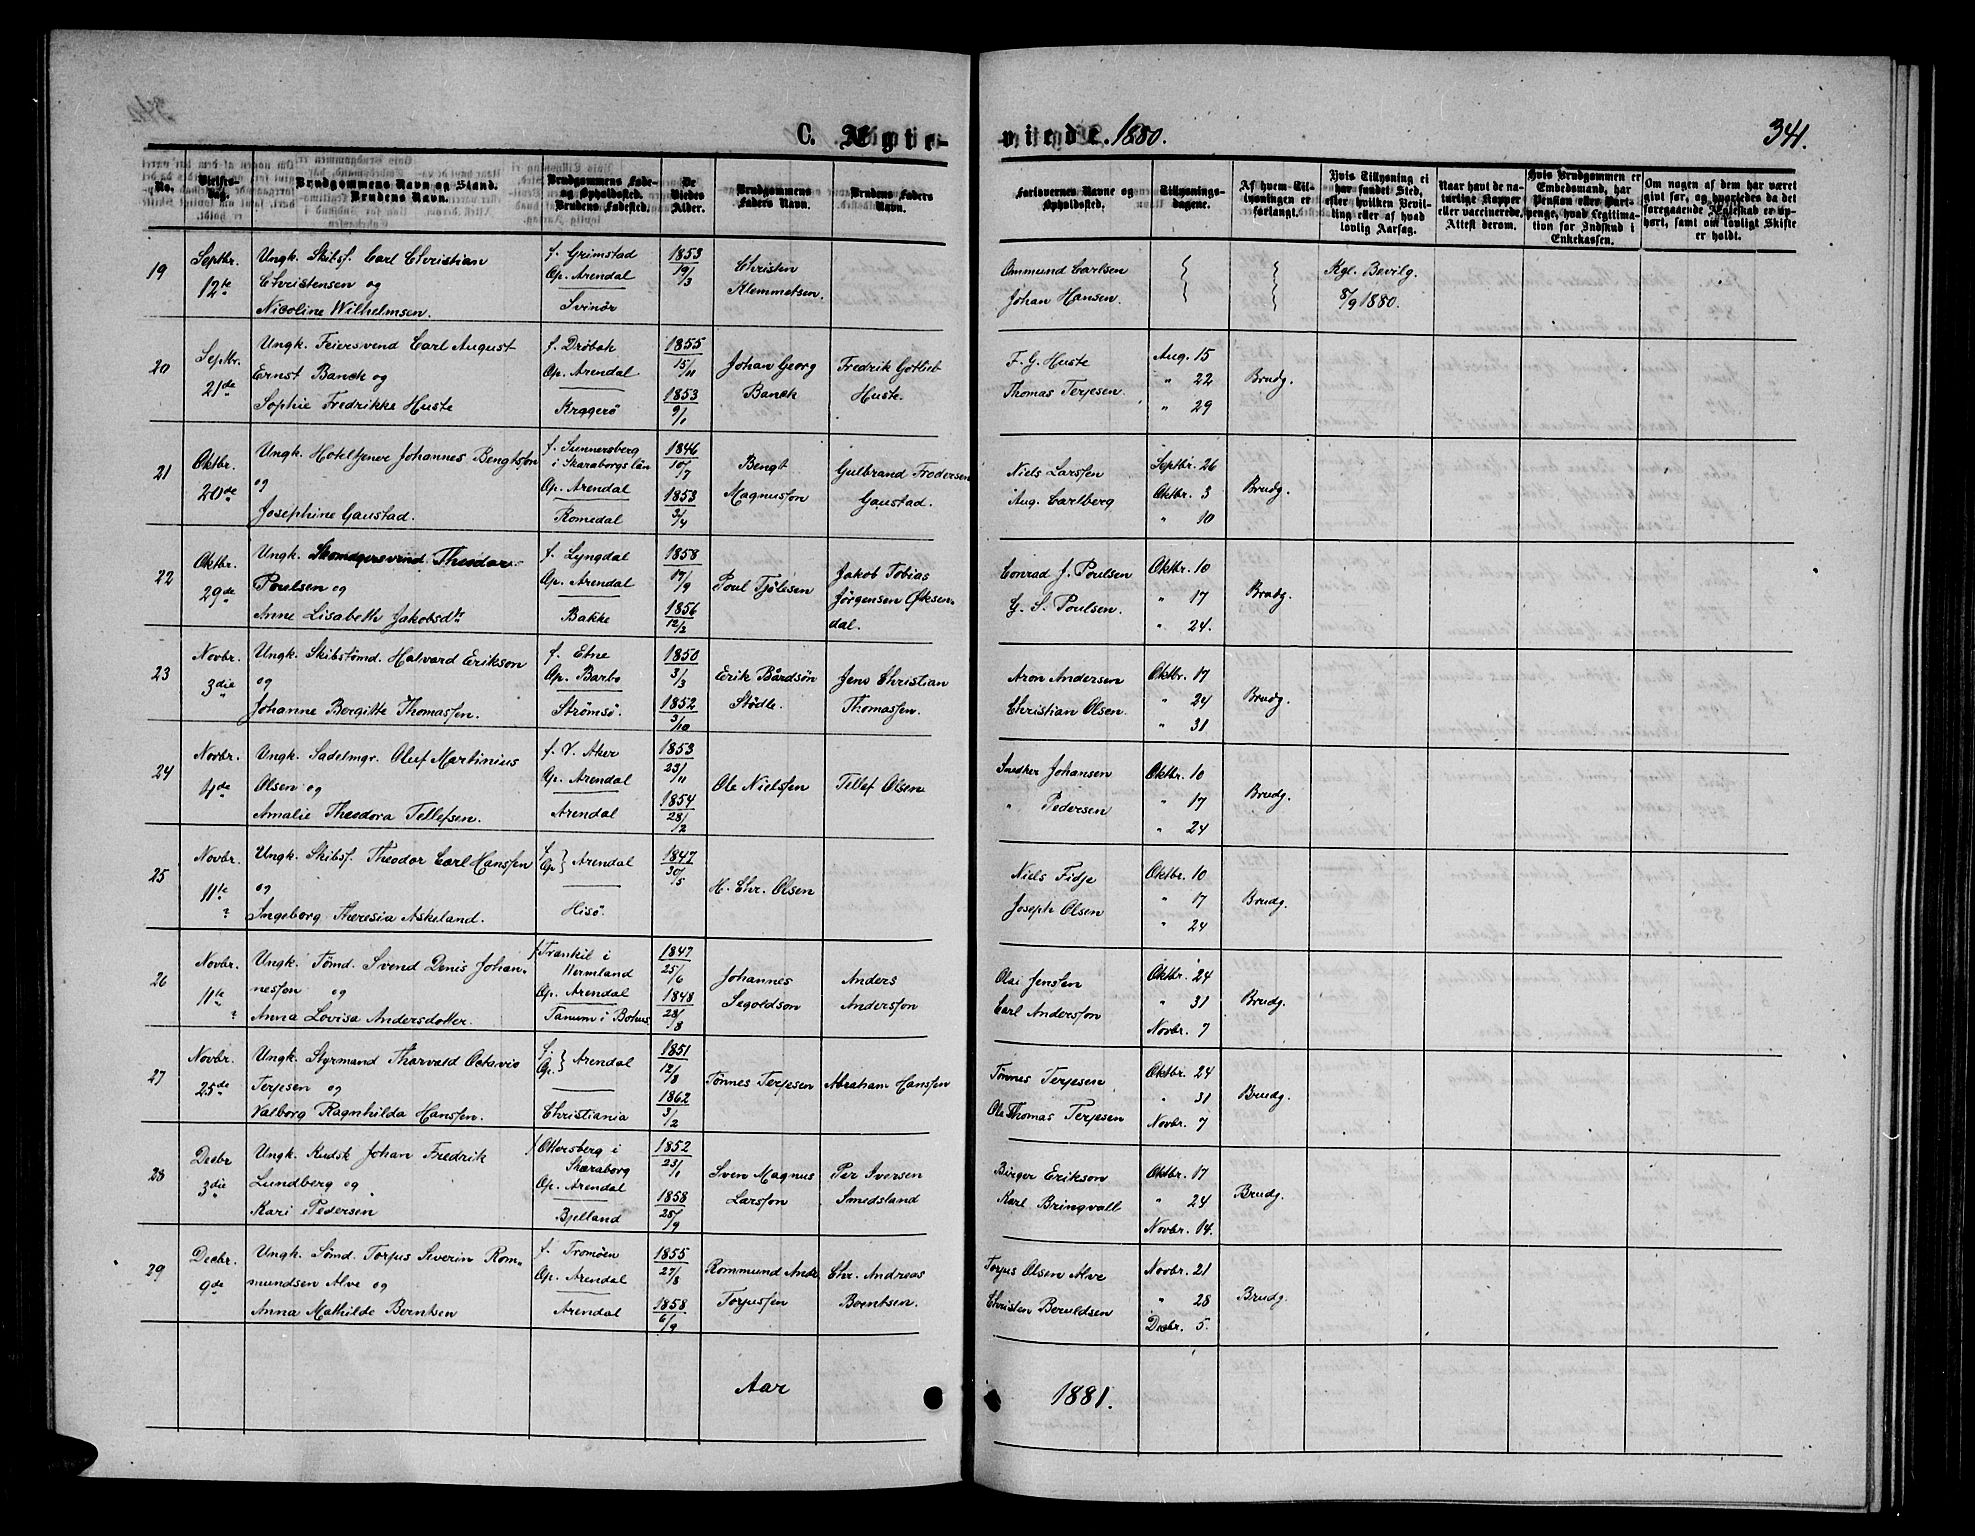 C. Ægte- viede. 1880. 341.
No.
Vielses-Dag.
Brudgommens Navn og Stand.
Brudens Navn.
Brudgommens Føde-
og Opholdssted.
Brudens Fødested.
De
Viedes
Alder.
Brudgommens
Faders Navn.
Brudens Faders
Navn.
Forlovernes Navne og
Opholdssted.
Tillysnings-
dagene.
Af hvem Til-
lysningen er
forlangt.
Hvis Tillysning ei
har fundet Sted,
efter hvilken Bevil-
ling eller af hvad
lovlig Aarsag.
Naar havt de na-
turlige Kopper
eller vaccinerede.
Attest derom.
Hvis Brudgommen er
Embedsmand, har
Pension eller Vart-
penge, hvad Legitima-
tion for Indskud i
Enkekassen.
Om nogen af dem har været
givt før, og hvorledes da det
foregaaende Ægteskab er op-
hørt, samt om lovligt Skifte
er holdt.
19
Septbr.
12te
Ungk. Skibsf. Carl Christian
Christensen og
Nicoline Wilhelmsen.
f. Grimstad
Op. Arendal
Svinør
1853
19/3
Christen
Klemmetsen.
Ommund Carlsen
Johan Hansen.
Kgl. Bevilg.
8/9 1880.
20
Septbr.
21de
Ungk. Feiersvend Carl August
Ernst Banck og
Sophie Fredrikke Huste
f. Drøbak
Op. Arendal
Kragerø
1855
15/11
1853
9/1
Johan Georg
Banck
Fredrik Gotlieb
Huste.
F. G. Huste
Thomas Terjesen
Aug. 15
" 22
" 29
Brudg.
21
Oktbr.
20de
Ungk. Hoteltjener Johannes Bengtsson
og
Josephine Gaustad.
f. Sunnersberg
i Skaraborgs län
Op. Arendal
Romedal
1846
10/7
1853
3/4
Bengt
Magnusson
Gulbrand Frodersen
Gaustad.
Niels Larssen
Aug. Carlberg
Septbr. 26
Oktbr. 3
" 10
Brudg.
22
Oktbr.
29de
Ungk. Skomagersvend Theodor
Poulsen og
Anne Lisabeth Jakobsdtr
f. Lyngdal
Op. Arendal
Bakke
1858
17/9
1856
12/2
Poul Tjølesen
Jakob Tobias
Jørgensen Øksen-
dal.
Conrad J. Poulsen
G. S. Poulsen.
Oktbr. 10
" 17
" 24.
Brudg.
23
Novbr.
3die
Ungk. Skibstømd. Halvard Erikson
og
Johanne Bergitte Thomassen.
f. Etne
Op. Barbo
Strømsø.
1850
3/3
1852
3/10
Erik Bårdsøn
Stødle.
Jens Christian
Thomassen.
Aron Andersen
Christian Olsen.
Oktbr. 17
" 24
" 31
Brudg.
24
Novbr.
4de
Ungk. Sadelmgr. Oluf Martinius
Olsen og
Amalie Theodora Tellefsen.
f. V. Aker
Op. Arendal
Arendal
1853
23/11
1854
28/2
Ole Nielssen
Tellef Olsen
Snedker Johansen
" Pedersen
Oktbr. 10
" 17
" 24
Brudg.
25
Novbr.
11te
?
Ungk. Skibsf. Theodor Carl Hanssen
og
Ingeborg Theresia Askeland.
f.
Op. } Arendal
Hisø.
1847
30/5
H. Chr. Olsen
Niels Fidje
Joseph Olsen
Oktbr. 10
" 17
" 24
Brudg.
26
Novbr.
11te
?
Ungk. Tømd. Svend Denis Johan-
nesson og
Anna Lovisa Andersdotter.
f. Trankil i
Wermland
Op. Arendal
Tanum i Bohus
1847
25/6
1848
28/8
Johannes
Segoldson
Anders
Andersson
Olai Jensten
Carl Andersson
Oktbr. 24
" 31
Novbr. 7
Brudg.
27
Novbr.
25de
Ungk. Styrmand Thorvald Octavio
Terjesen og
Valborg Ragnhilda Hanssen.
f.
Op. } Arendal
Christiania
1851
12/8
1862
3/2
Tønnes Terjesen
Abraham Hanssen
Tønnes Terjesen
Ole Thomas Terjesen
Oktbr. 24
" 31
Novbr. 7
Brudg.
28
Decbr
3die
Ungk. Kudsk Johan Fredrik
Lundberg og
Kari Pedersen
f. Ottersberg i
Skaraborg
Op. Arendal
Bjelland
1852
23/1
1858
25/9
Sven Magnus
Larsson
Per Iversen
Smedsland
Birger Erikson
Karl Bringvall
Oktbr. 17
" 24
Novbr. 14.
Brudg.
29
Decbr.
9de
Ungk. Sømd. Torjus Severin Rom-
mundsen Alve og
Anna Mathilde Berntsen
f. Tromøen
Op. Arendal
Arendal
1855
27/8
1858
6/9
Rommund Andr.
Torjussen
Chr. Andreas
Berntsen.
Torjus Olsen Alve
Christen Beruldsen
Novbr. 21
" 28
Decbr. 5.
Brudg.
Aar 1881.